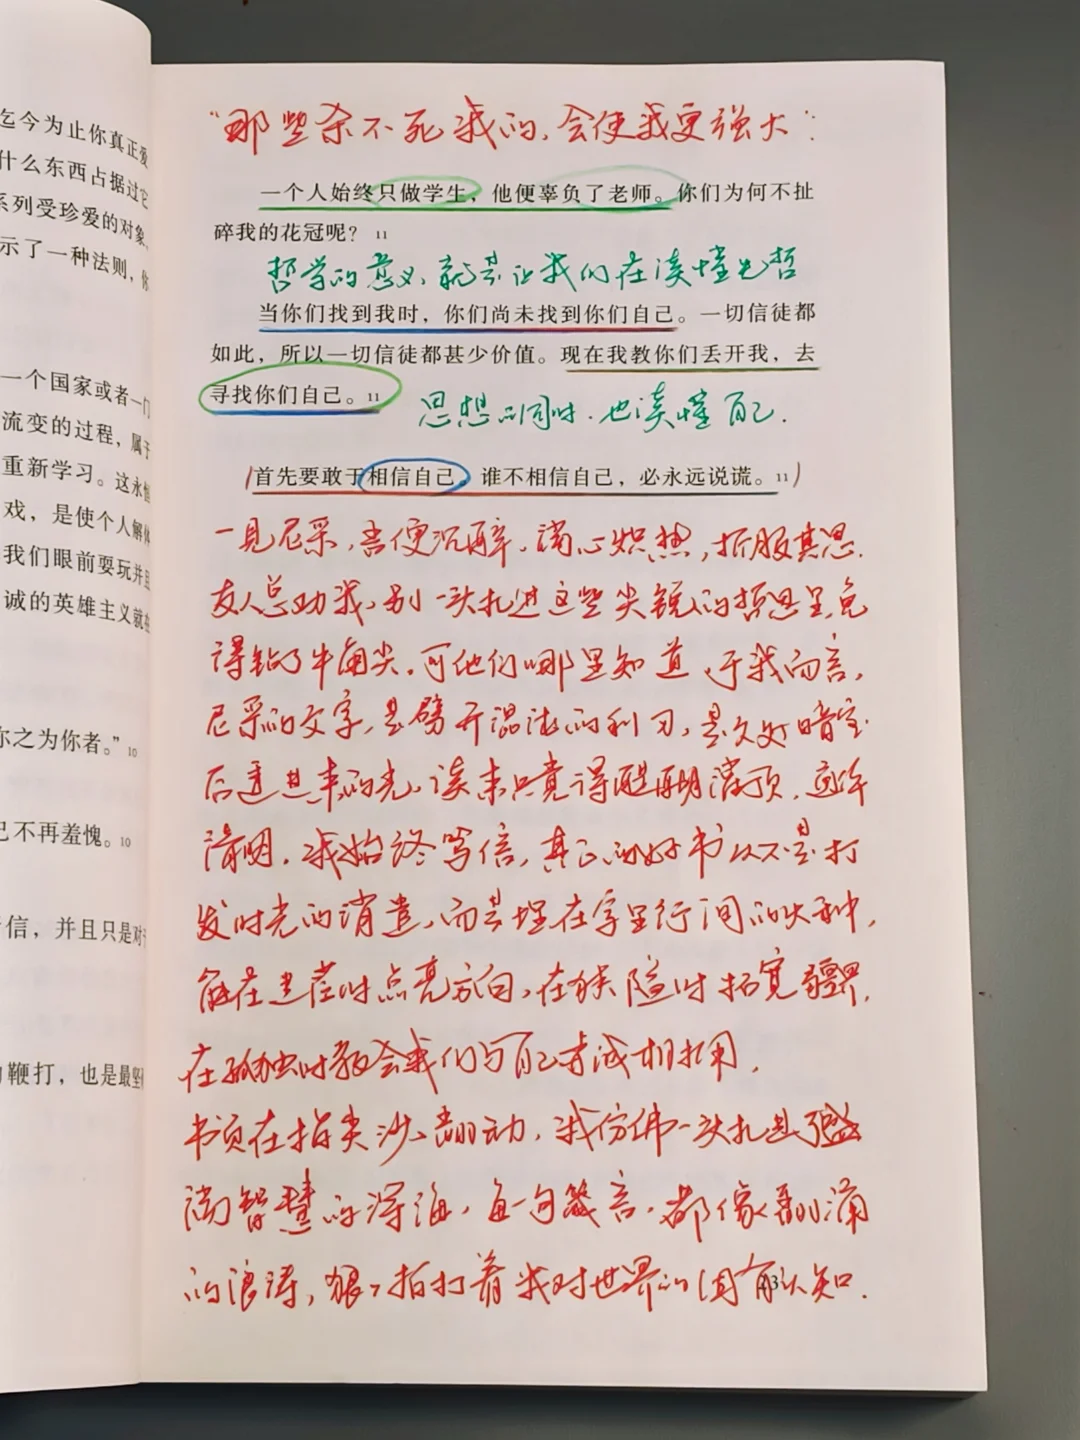 迄今为止你真正爱
什么东西占据过它
系列受珍爱的对象，
示了一种法则，你
一个国家或者一门
流变的过程，属于
重新学习。这永恒
戏，是使个人解体
我们眼前耍玩并且
诚的英雄主义就在
你之为你者。”10
己不再羞愧。10
信，并且只是对于
鞭打，也是最坚
“那些杀不死我的，会使我更强大”：
一个人始终只做学生，他便辜负了老师。你们为何不扯
碎我的花冠呢？ 11
哲学的意义，就是让我们在读懂先哲
当你们找到我时，你们尚未找到你们自己。一切信徒都
如此，所以一切信徒都甚少价值。现在我教你们丢开我，去
寻找你们自己。11
思想的同时，也读懂自己。
首先要敢于相信自己。谁不相信自己，必永远说谎。11
一见尼采，吾便沉醉，满心炽热，折服其思。
友人总劝我，别一头扎进这些尖锐的哲思里，免
得钻了牛角尖。可他们哪里知道，于我而言，
尼采的文字，是劈开混沌的利刃，是久处暗室
后透进来的光，读来只觉得醍醐灌顶，通体
清明。我始终笃信，真正的好书从不是打
发时光的消遣，而是埋在字里行间的火种，
能在迷茫时点亮方向，在狭隘时拓宽疆界，
在孤独时教会我们与自己赤诚相拥。
书页在指尖沙沙翻动，我仿佛一头扎进盛
满智慧的深海，每一句箴言，都像翻涌
的浪涛，狠狠拍打着我对世界的固有认知。